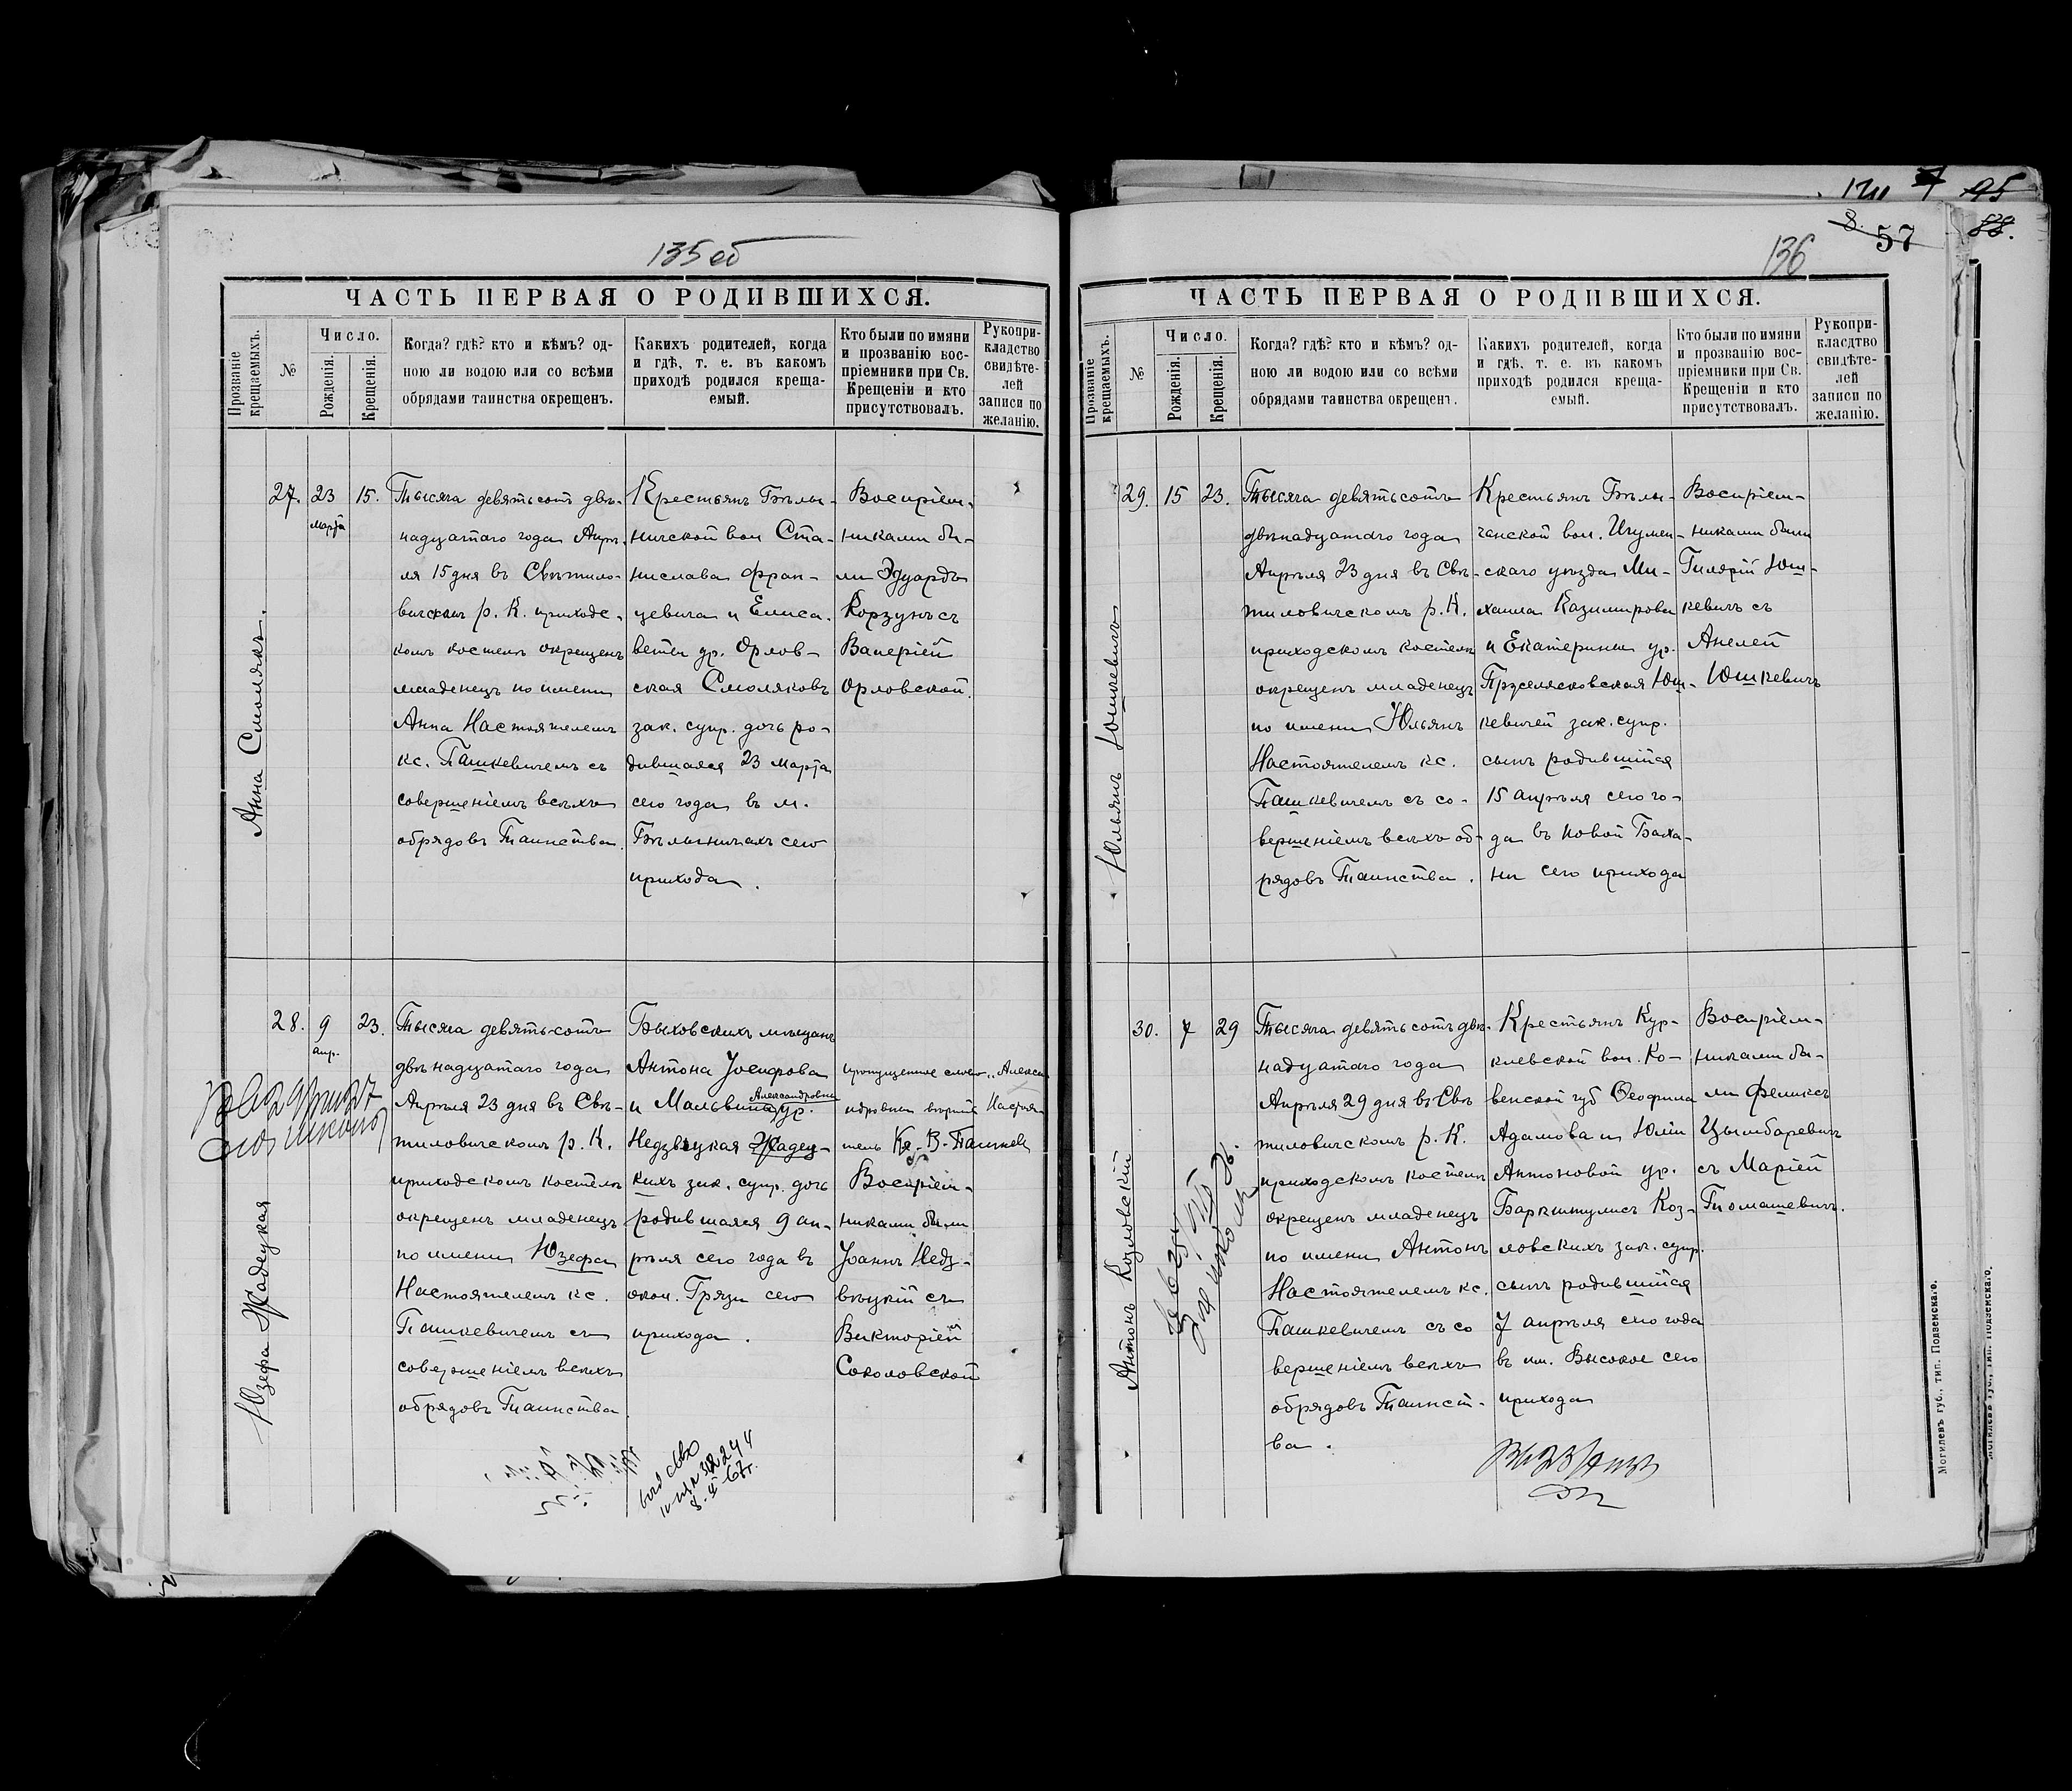 135 об
ЧАСТЬ ПЕРВАЯ О РОДИВШИХСЯ.
Прозваніе крещаемыхъ.
№
Число.
Рожденія.
Крещенія.
Когда? гдѣ? кто и кѣмъ? од-
ною ли водою или со всѣми
обрядами таинства окрещенъ.
Какихъ родителей, когда
и гдѣ, т. е. въ какомъ
приходѣ родился креща-
емый.
Кто были по имяни
и прозванію вос-
пріемники при Св.
Крещеніи и кто
присутствовалъ.
Рукопри-
кладство
свидѣте-
лей
записи по
желанію.
Анна Смолякъ.
27.
23
марта
15.
Тысяча девятьсот двѣ-
надцатаго года Апрѣ-
ля 15 дня въ Свѣтило-
вичскомъ р. К. приходс-
комъ костелѣ окрещенъ
младенецъ по имени
Анна Настоятелемъ
кс. Пашкевичемъ съ
совершеніемъ всѣхъ
обрядовъ Таинства.
Крестьянъ Бѣлы-
ничской вол Ста-
нислава Фран-
цевича и Елиса-
веты ур. Орлов-
ская Смоляковъ
зак. супр. дочь ро-
дившаяся 23 марта
сего года въ м.
Бѣлыничахъ сего
прихода.
Воспріем-
никами бы-
ли Эдуардъ
Корзунъ съ
Валеріей
Орловской.
Юзефа Жадецкая
28.
9
апр.
23.
Тысяча девятьсотъ
двѣнадцатаго года
Апрѣля 23 дня въ Свѣ-
тиловичскомъ р. К.
приходскомъ костелѣ
окрещенъ младенецъ
по имени Юзефа
Настоятелемъ кс.
Пашкевичемъ съ
совершеніемъ всѣхъ
обрядовъ Таинства.
Быховскихъ мѣщанъ
Антона Іосифова
Александровны
и Мальвины ур.
Недзвѣцкая Жадец-
кихъ зак. супр. дочь
родившаяся 9 ап-
рѣля сего года въ
окол. Грязи сего
прихода.
пропущенное слово „Алекса
ндровны Настоя-
тель Кс. В. Пашкев
Воспріем-
никами были
Іоаннъ Недз-
вѣцкій съ
Викторіей
Соколовской
136
8.
57
ЧАСТЬ ПЕРВАЯ О РОДИВШИХСЯ.
Прозваніе крещаемыхъ.
№
Число.
Рожденія.
Крещенія.
Когда? гдѣ? кто и кѣмъ? од-
ною ли водою или со всѣми
обрядами таинства окрещенъ.
Какихъ родителей, когда
и гдѣ, т. е. въ какомъ
приходѣ родился креща-
емый.
Кто были по имяни
и прозванію вос-
пріемники при Св.
Крещеніи и кто
присутствовалъ.
Рукопри-
кладство
свидѣте-
лей
записи по
желанію.
Юльянъ Юшкевичъ
29.
15
23.
Тысяча девятьсотъ
двѣнадцатаго года
Апрѣля 23 дня въ Свѣ-
тиловичскомъ р. К.
приходскомъ костелѣ
окрещенъ младенецъ
по имени Юльянъ
Настоятелемъ кс.
Пашкевичемъ съ со-
вершеніемъ всѣхъ об-
рядовъ Таинства.
Крестьянъ Бѣлы-
чанской вол. Игумен-
скаго уѣзда Ми-
хаила Казимирова
и Екатерины ур.
Юш-
кевичей зак. супр.
сынъ родившійся
15 апрѣля сего го-
да въ Новой
сего прихода
Воспріем-
никами были
Гилярій Юш-
кевичъ съ
Анелей
Юшкевичъ
Антонъ Козловскій
30.
7
29
Тысяча девятьсотъ двѣ-
надцатаго года
Апрѣля 29 дня въ Свѣ
тиловичскомъ р. К.
приходскомъ костелѣ
окрещенъ младенецъ
по имени Антонъ
Настоятелемъ кс.
Пашкевичемъ съ со
вершеніемъ всѣхъ
обрядовъ Таинст-
ва.
Крестьянъ Кур-
клевской вол. Ко-
венской губ Ѳеофила
Адамова и Юліи
Антоновой ур.
Коз-
ловскихъ зак. супр.
сынъ родившійся
7 апрѣля сего года
въ им. Высокое сего
прихода
Воспріем-
никами бы-
ли Феликсъ
Цымбаревичъ
съ Маріей
Томашевичъ.
Могилевъ губ., тип. Подземскаго.